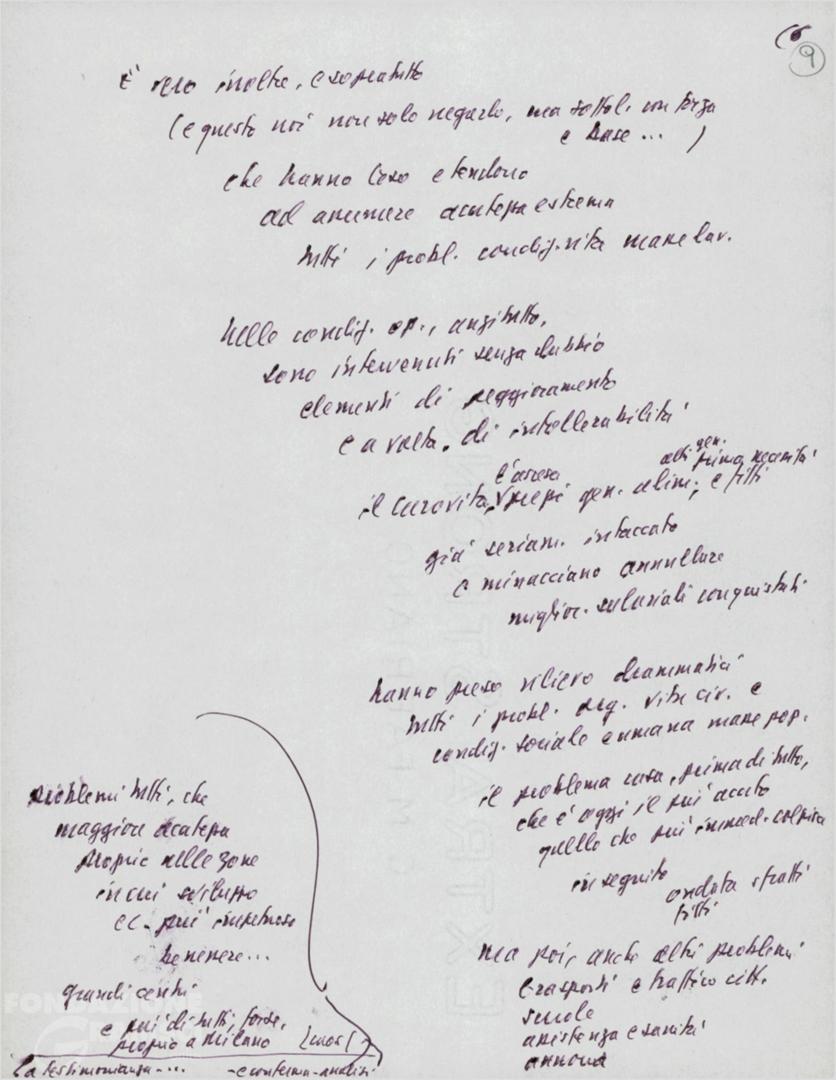 9
È vero inoltre, e sopratutto
(e questo noi non solo negarlo, ma sottol. con forza
e base ... )
che hanno reso e tendono
ad assumere acutezza estrema
tutti i probl. condiz. vita masse lav.
Nelle condiz. op., anzitutto,
sono intervenuti senza dubbio
elementi di peggioramento
e a volta, di intollerabilità
l'ascesa
altri gen. prima necessità
il carovita, prezzi gen. alim., e fitti
già seriam. intaccato
e minacciano annullare
miglior. salariali conquistati
hanno preso rilievo drammatici
tutti i probl. org. vita civ. e
condiz. sociale e umana masse pop.
il problema casa, prima di tutto,
che è oggi il più acuto
quello che più immed. colpisce
in seguito
ondata sfratti
fitti
ma poi, anche altri problemi
trasporti e traffico citt.
scuole
assistenza e sanità
annona
problemi tutti, che
maggiore acutezza
proprio nelle zone
in cui sviluppo
ec. più impetuoso
benessere...
grandi centri
e più di tutti, forse,
proprio a Milano
la testimonianza ....
- e conferma - analisi
FONDAZIONE